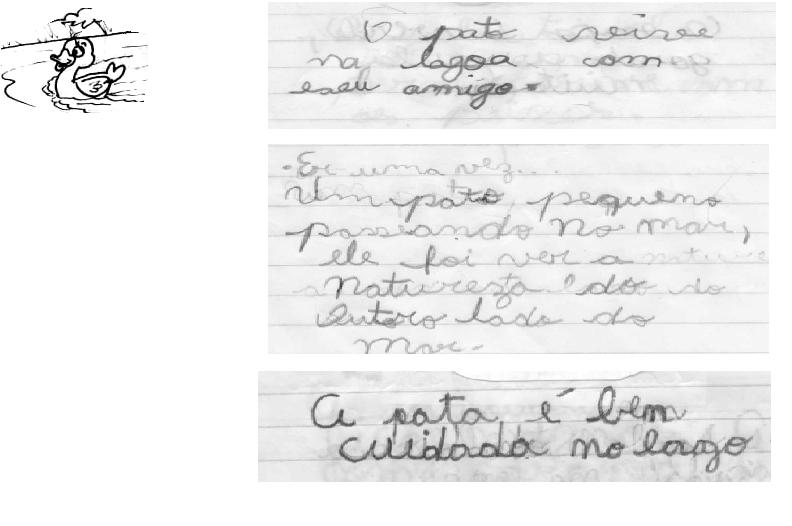 O pato
na lagoa com
eseu amigo.
Er uma vez...
Um pato pequeno
passeando no mar,
ele foi ver a
Natureza do
Outoro lado do
Mar.
A pata é bem
cuidada no lago